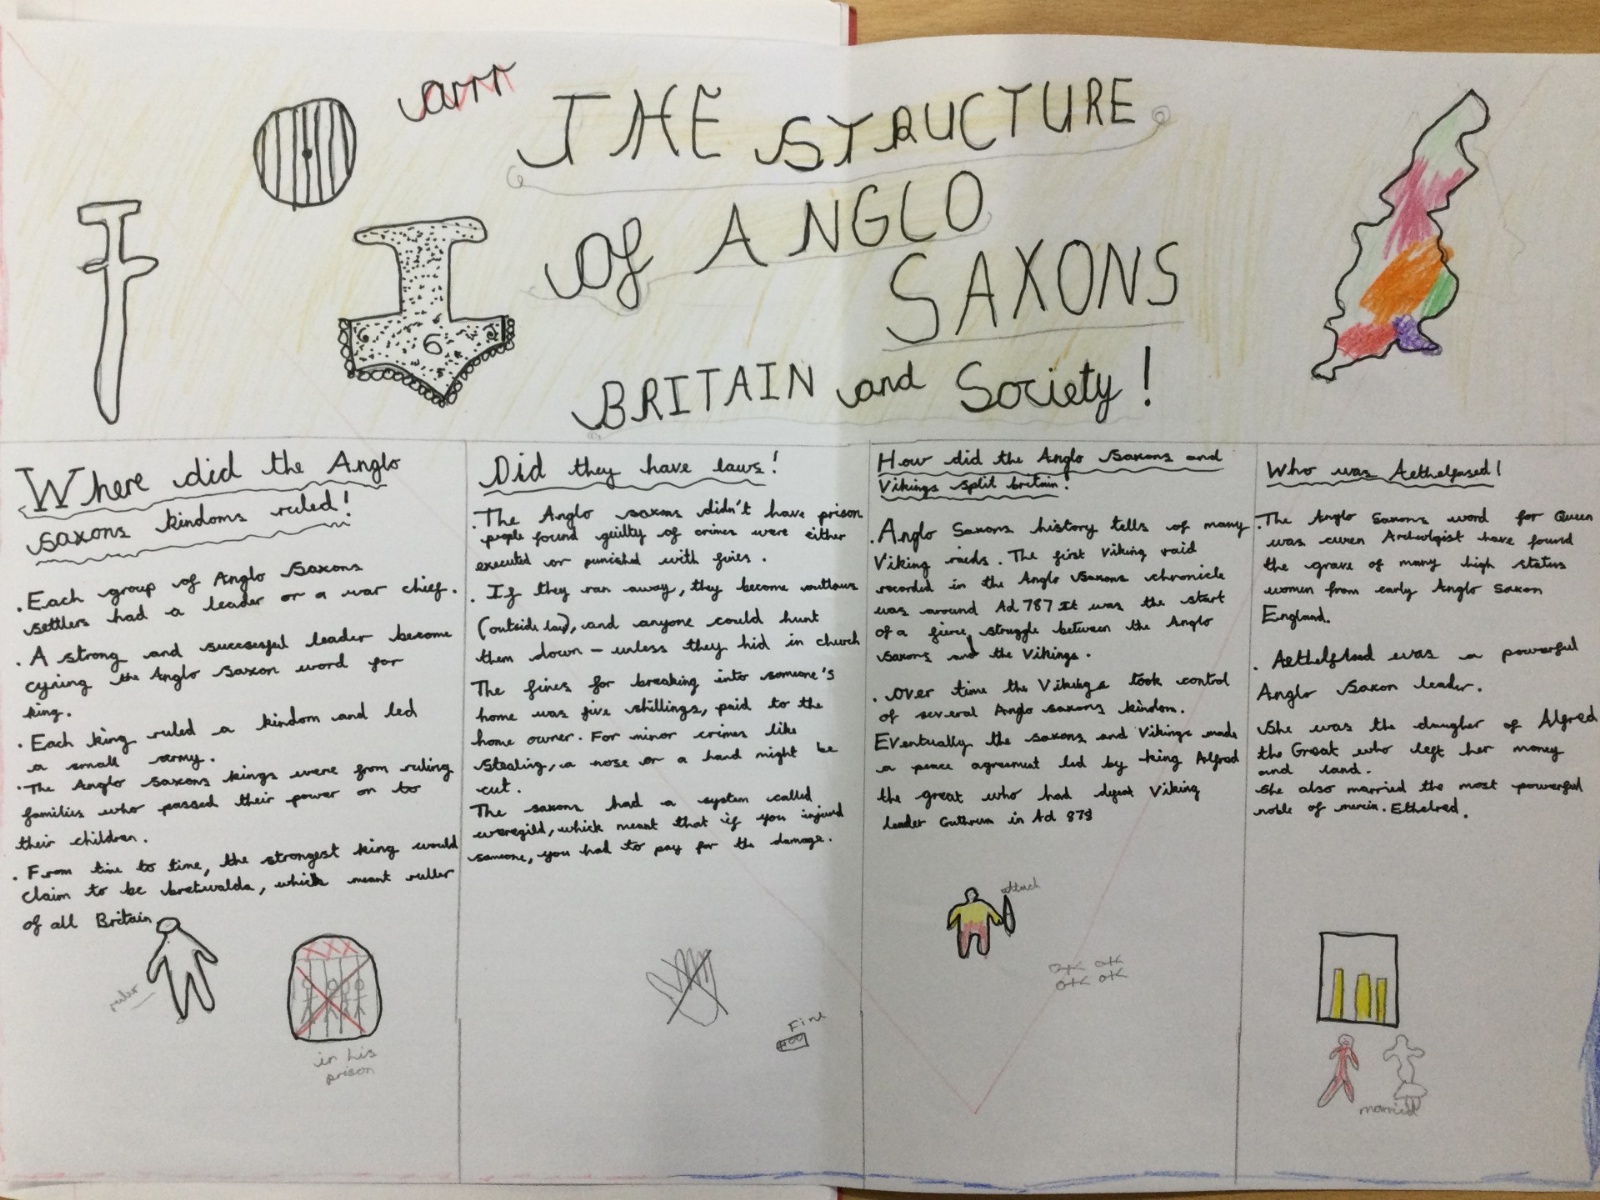 arrr
THE STRUCTURE
of ANGLO
SAXONS
BRITAIN and Society!
6
Where did the Anglo
saxons kindoms ruled!
. Each group of Anglo Saxons
settlers had a leader or a war chief.
. A strong and succsesful leader become
cyning the Anglo Saxon word for
king.
. Each king ruled a kindom and led
a small army.
. The Anglo saxons kings were from ruling
families who passed their power on to
their children.
. From time to time, the strongest king would
claim to be bretwalda, which meant ruller
of all Britain
ruler
in his
prison
Did they have laws!
. The Anglo saxons didn't have prison
people found guilty of crimes were either
executed or punished with fines.
. If they ran away, they become outlaws
(outside law), and anyone could hunt
them down - unless they hid in church
The fines for breaking into someone's
home was five shillings, paid to the
home owner. For minor crimes like
stealing, a nose or a hand might be
cut.
The saxons had a system called
weregild, which meant that if you injured
someone, you had to pay for the damage.
Fine
How did the Anglo Saxons and
Vikings split britain!
. Anglo Saxons history tells of many
Viking raids. The first Viking raid
recorded in the Anglo Saxons chronicle
was around Ad 787 It was the start
of a fierce struggle between the Anglo
saxons and the Vikings.
. over time the Vikings took control
of several Anglo saxons kindom.
Eventually the saxons and Vikings made
a peace agreement led by king Alfred
the great who had defeat Viking
leader Guthrum in Ad 878
attack
Who was Aethelflaed!
. The Anglo Saxons word for Queen
was cwen Archeolgist have found
the grave of many high status
women from early Anglo Saxon
England.
. Aethelflaed was a powerful
Anglo Saxon leader.
She was the daugher of Alfred
the Great who left her money
and land.
She also married the most powerful
noble of mercia. Ethelred.
married